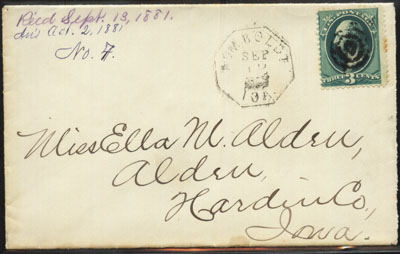 Rec'd Sept. 13, 1881.
Ans Oct. 2, 1881
No. 7.
HUMBOLDT
SEP
12
IA.
U.S. POSTAGE
THREE 3 CENTS
Miss Ella M. Alden,
Alden,
Hardin Co.,
Iowa.